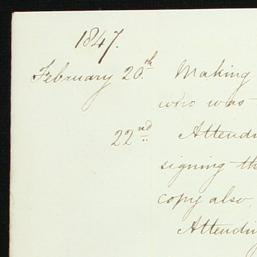 1847.
February 20th Making
who was
22nd Attendi
signing th
copy also,
Attending